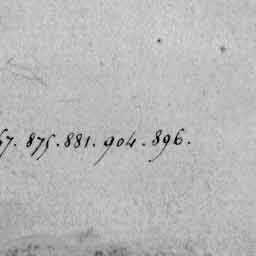 67. 875. 881. 904. 896.